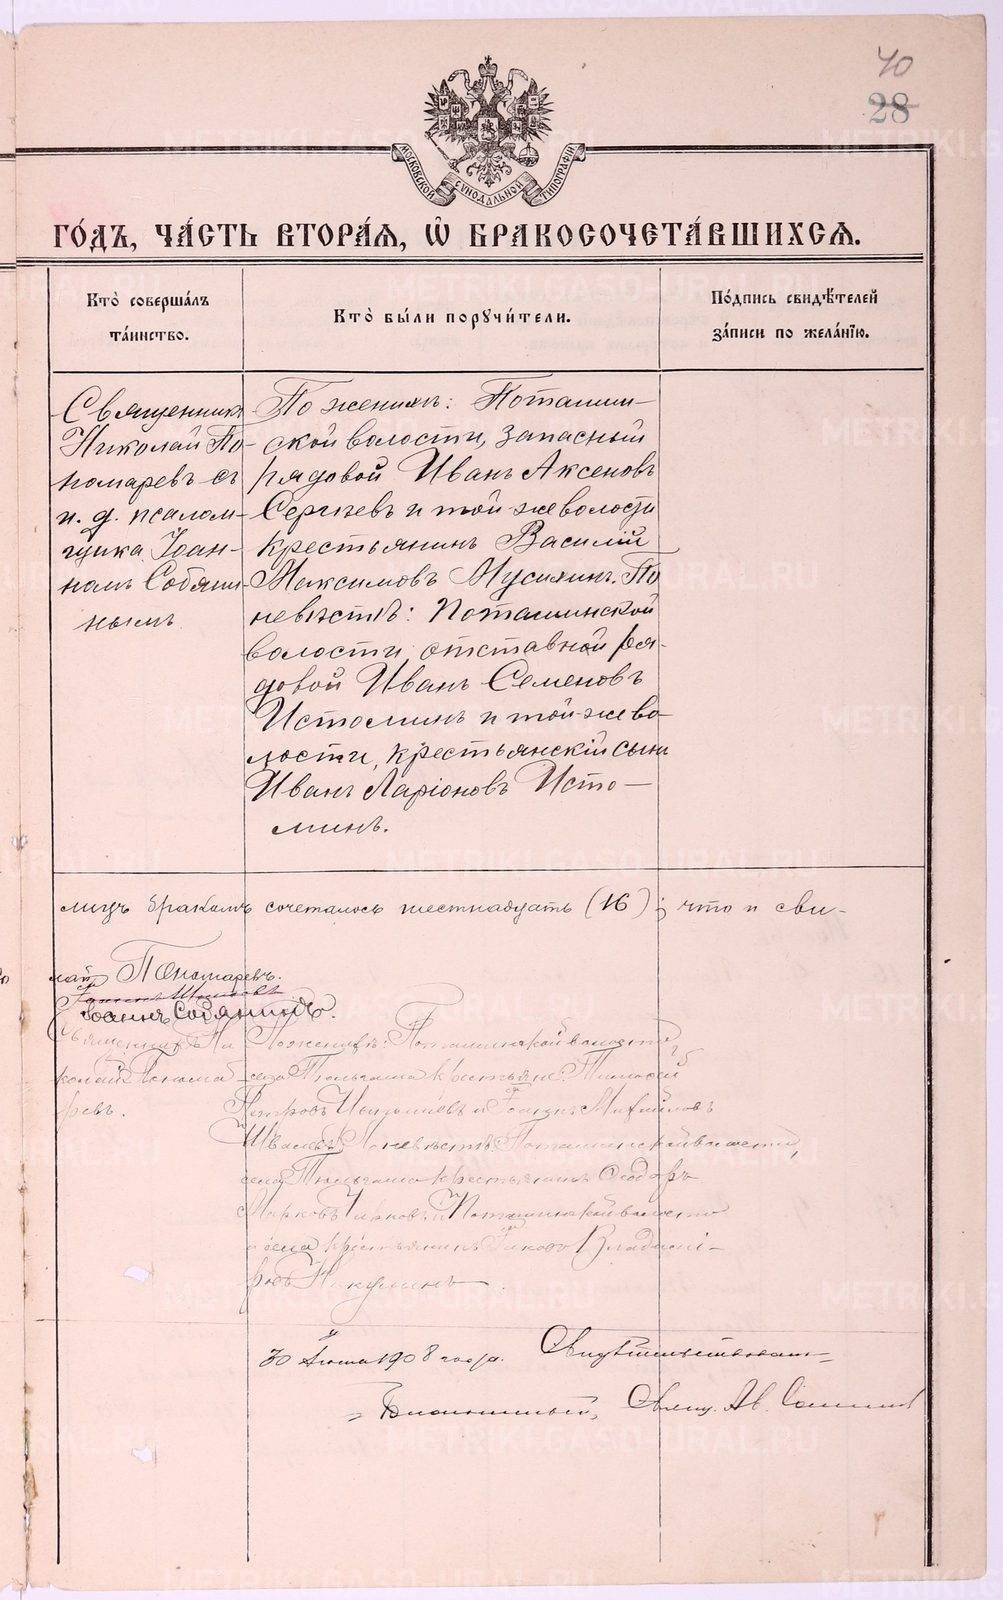 40
28
МОСКОВСКОЙ СѴНОДАЛЬНОЙ ТИПОГРАФІИ
ГО́ДЪ, ЧА́СТЬ ВТОРА́Я, Ѡ҆ БРАКОСОЧЕТА́ВШИХСЯ.
Кто̀ соверша́лъ
та́инство.
Кто̀ бы́ли порꙋчи́тели.
По́дпись свидѣ́телей
за́писи по жела́нїю.
Священникъ
Николай По-
номаревъ съ
и. д. псалом-
щика Іоан-
номъ Собяни-
нымъ
По женихѣ: Поташин-
ской волости, запасный
рядовой Иванъ Аксеновъ
Сергѣевъ и той же волости
крестьянинъ Василій
Максимовъ Мусихинъ. По
невѣстѣ: Поташинской
волости, отставной ря-
довой Иванъ Семеновъ
Истоминъ и той-же во-
лости, крестьянскій сынъ
Иванъ Ларіоновъ Исто-
минъ.
лицъ бракомъ сочеталось шестнадцать (16); что и сви-
лай Пономаревъ.
Іоаннъ Собянинъ.
Священникъ Ни
колай Понома
ревъ.
По женихѣ: Поташинской волости
села крестьяне: Тимофей
Петровъ и Михайловъ
По невѣстѣ: Поташинской волости,
села крестьянинъ Ѳеодоръ
Марковъ и Поташинской волости
села крестьянинъ Іаковъ Владимі-
ровъ Никулинъ
30 1908 года. Свидѣтельствовалъ
Благочинный, Свящ. Ал.
METRIKI.GASO-URAL.RU